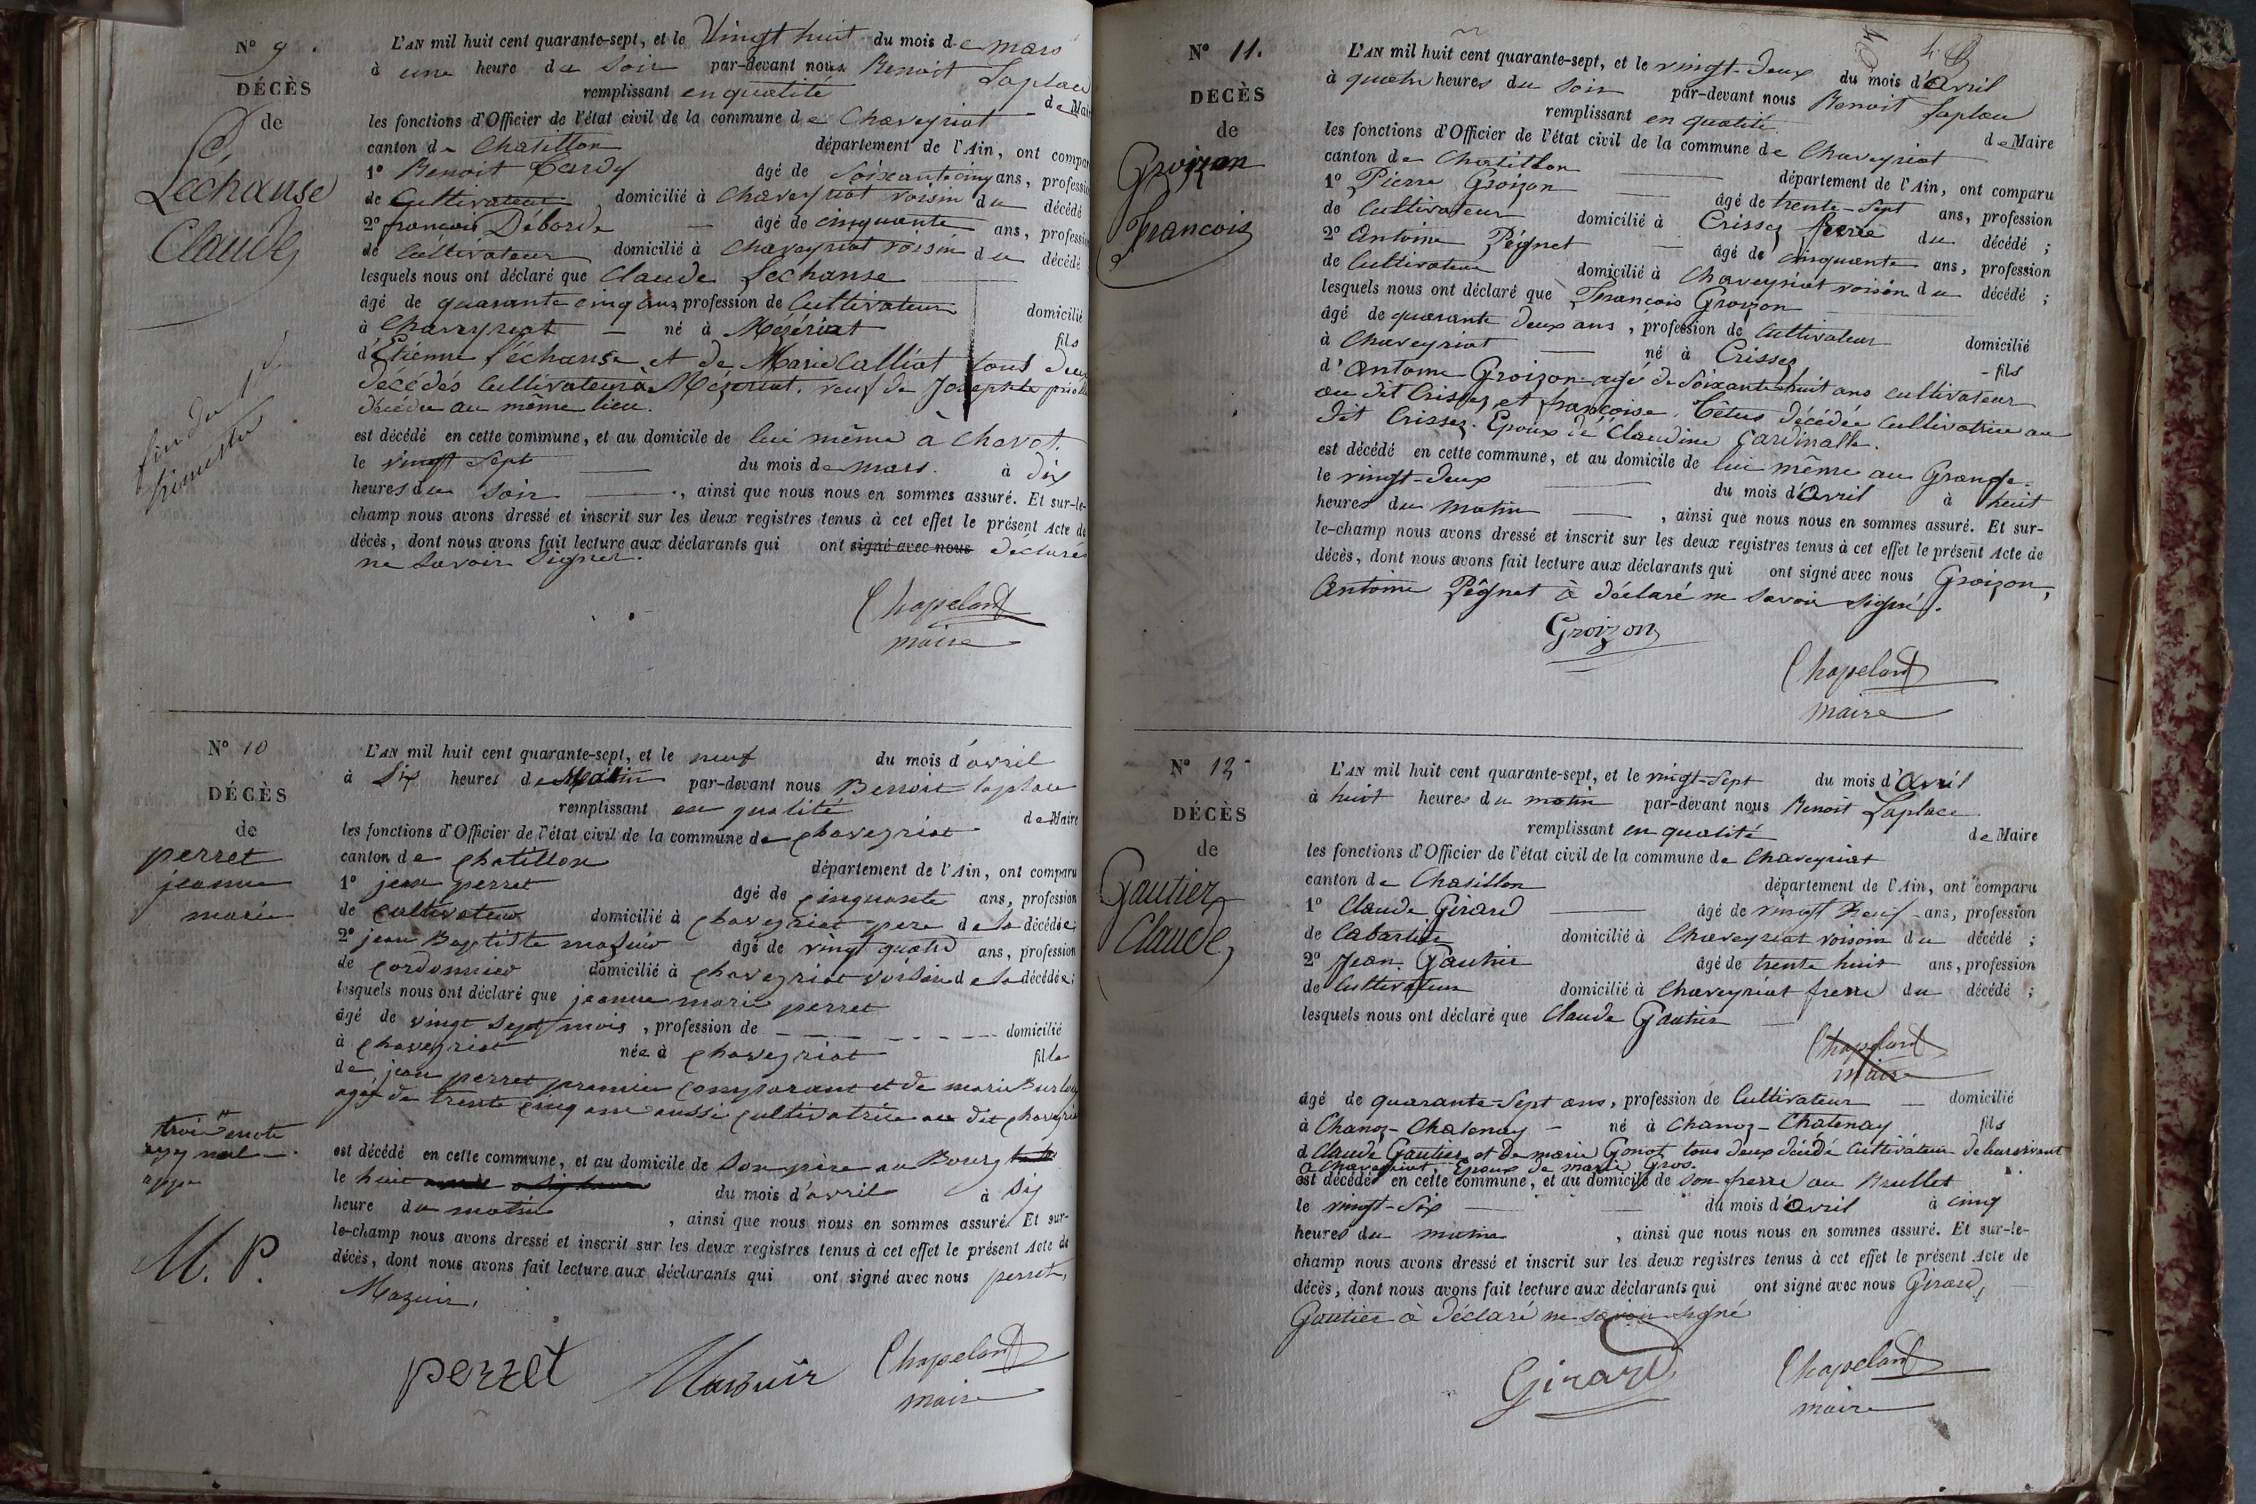 N° 9.
DÉCÈS
de
Lechanse
Claude
fin du 1er
trimestre
L'AN mil huit cent quarante-sept, et le Vingt huit du mois de mars
à une heure du Soir par-devant nous Benoit Laplace
remplissant en qualité de Maire
les fonctions d'Officier de l'état civil de la commune de Chaveyriat
canton de Chatillon département de l'Ain, ont compar
1° Benoit âgé de Soixante cinq ans, professi
de Cultivateur domicilié à Chaveyriat voisin du décédé
2° francois Déborde — âgé de cinquante ans, professi
de Cultivateur domicilié à Chaveyriat voisin du décédé
lesquels nous ont déclaré que Claude Lechanse
âgé de quarante cinq ans profession de Cultivateur domicilié
à Chaveyriat — né à Mézériat fils
d'Etienne Léchanse et de Marie Calliat tous deux
décédés Cultivateurs à Mézériat, veuf de Josephte
décédée au même lieu.
est décédé en cette commune, et au domicile de lui même à Chavot.
le vingt sept — du mois de mars. à dix
heures du soir —, ainsi que nous nous en sommes assuré. Et sur-le-
champ nous avons dressé et inscrit sur les deux registres tenus à cet effet le présent Acte de
décès, dont nous avons fait lecture aux déclarants qui ont signé avec nous déclarés
ne savoir signer.
Chapeland
maire
N° 10
DÉCÈS
de
perret
jeanne
marie
M. P.
L'AN mil huit cent quarante-sept, et le neuf du mois d'avril
à Six heures de Matin par-devant nous Benoit laplace
remplissant en qualité de Maire
les fonctions d'Officier de l'état civil de la commune de chaveyriat
canton de chatillon département de l'Ain, ont comparu
1° jean perret âgé de cinquante ans, profession
de cultivateur domicilié à chaveyriat pere de la décédée;
2° jean Baptiste mazuir âgé de vingt quatre ans, profession
de cordonnier domicilié à chaveyriat voisin de la décédée;
lesquels nous ont déclaré que jeanne marie perret
âgé de vingt sept mois, profession de — domicilié
à chaveyriat née à chaveyriat fille
de jean perret premier comparant et de marie
agée de trente cinq ans aussi cultivatrice au dit chaveyriat
est décédé en cette commune, et au domicile de Son père au Bourg
le huit du mois d'avril à Six
heure du matin, ainsi que nous nous en sommes assuré. Et sur-
le-champ nous avons dressé et inscrit sur les deux registres tenus à cet effet le présent Acte de
décès, dont nous avons fait lecture aux déclarants qui ont signé avec nous perret,
Mazuir.
perret Mazuir Chapeland
maire
N° 11.
DÉCÈS
de
Groizon
Francois
L'AN mil huit cent quarante-sept, et le vingt-deux du mois d'Avril
à quatre heures du soir par-devant nous Benoit Laplace
remplissant en qualité de Maire
les fonctions d'Officier de l'état civil de la commune de Chaveyriat
canton de Chatillon — département de l'Ain, ont comparu
1° Pierre Groizon — âgé de trente-sept ans, profession
de Cultivateur domicilié à Crissez frere du décédé;
2° Antoine Pégnet — âgé de cinquante ans, profession
de Cultivateur domicilié à Chaveyriat voisin du décédé;
lesquels nous ont déclaré que François Groizon
âgé de quarante deux ans, profession de Cultivateur domicilié
à Chaveyriat — né à Crissez - fils
d'Antoine Groizon agé de soixante huit ans cultivateur
au dit Crissez et françoise Têtus décédée cultivatrice au
dit Crissez. Epoux de Claudine Cardinalle.
est décédé en cette commune, et au domicile de lui même au Grange.
le vingt-deux — du mois d'Avril à huit
heures du matin —, ainsi que nous nous en sommes assuré. Et sur-
le-champ nous avons dressé et inscrit sur les deux registres tenus à cet effet le présent Acte de
décès, dont nous avons fait lecture aux déclarants qui ont signé avec nous Groizon,
Antoine Pêgnet à déclaré ne savoir signé.
Groizon
Chapeland
maire
N° 12
DÉCÈS
de
Gautier
Claude
L'AN mil huit cent quarante-sept, et le vingt-sept du mois d'Avril
à huit heures du matin par-devant nous Benoit Laplace
remplissant en qualité de Maire
les fonctions d'Officier de l'état civil de la commune de Chaveyriat
canton de Chatillon département de l'Ain, ont comparu
1° Claude Girard — âgé de vingt neuf ans, profession
de Cabartier domicilié à Chaveyriat voisin du décédé;
2° Jean Gautier âgé de trente huit ans, profession
de Cultivateur domicilié à Chaveyriat frere du décédé;
lesquels nous ont déclaré que Claude Gautier —
Chapeland
maire
âgé de quarante-sept ans, profession de Cultivateur — domicilié
à Chanoz-Chatenay — né à Chanoz-Chatenay fils
d Claude Gautier et de marie Gonot tous deux décédé Cultivateur de leur vivant
à Chaveyriat, Epoux de marie Gros.
est décédé en cette commune, et au domicile de son frere au Brullet
le vingt-Six — du mois d'Avril à cinq
heures du matin, ainsi que nous nous en sommes assuré. Et sur-le-
champ nous avons dressé et inscrit sur les deux registres tenus à cet effet le présent Acte de
décès, dont nous avons fait lecture aux déclarants qui ont signé avec nous Girard,
Gautier à déclaré ne savoir signé
Girard Chapeland
maire